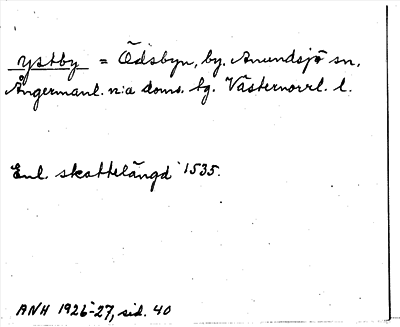 ystby = Ödsbyn, by. Anundsjö sn.
Ångermanl. n:a doms. hg. Västernorrl. l.
Enl. skattelängd 1535.
ANH 1926-27, sid. 40